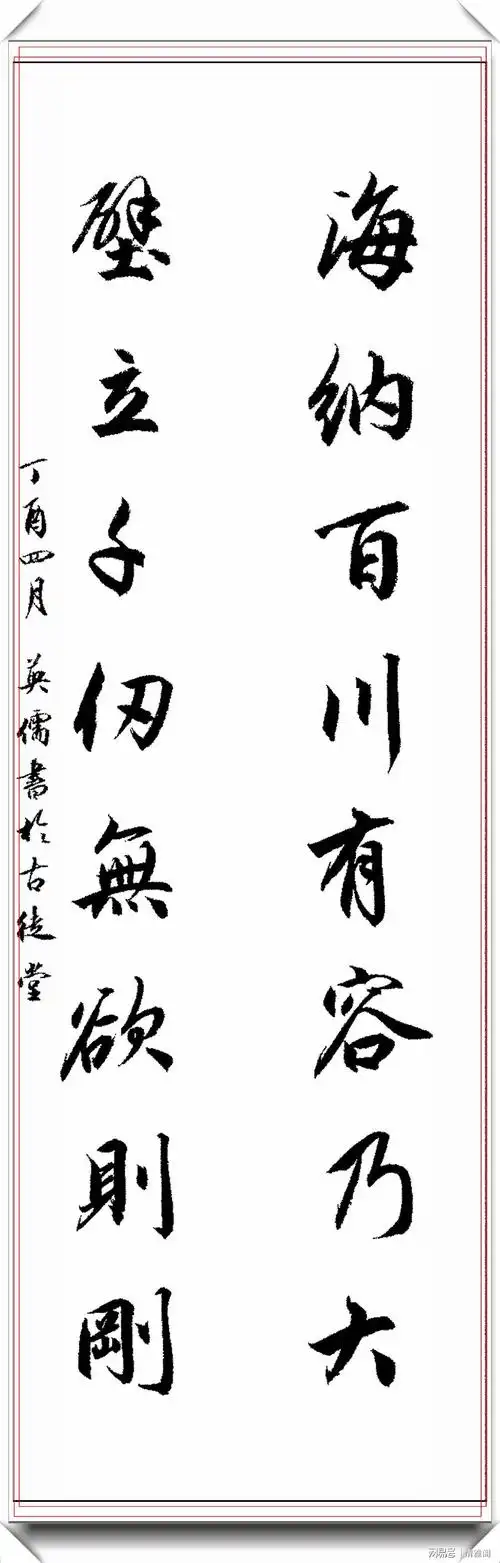 海納百川有容乃大
壁立千仞無欲則剛
丁酉四月 英儒書於古徒堂
网易号 | 精雅阁